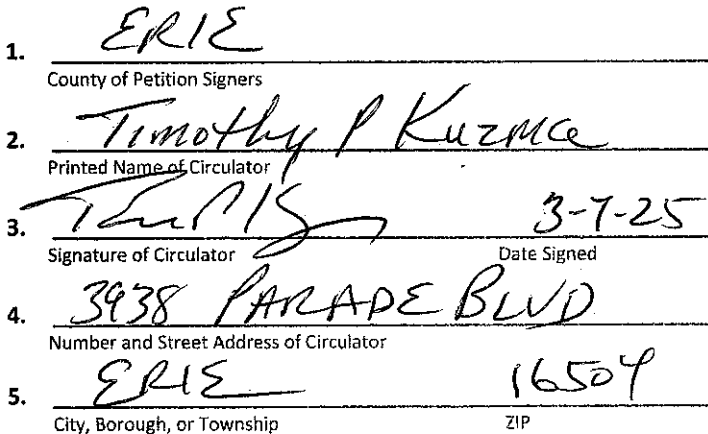 1. ERIE
County of Petition Signers
2. Timothy P Kuzma
Printed Name of Circulator
3. 3-7-25
Signature of Circulator Date Signed
4. 3938 PARADE BLVD
Number and Street Address of Circulator
5. ERIE 16504
City, Borough, or Township ZIP